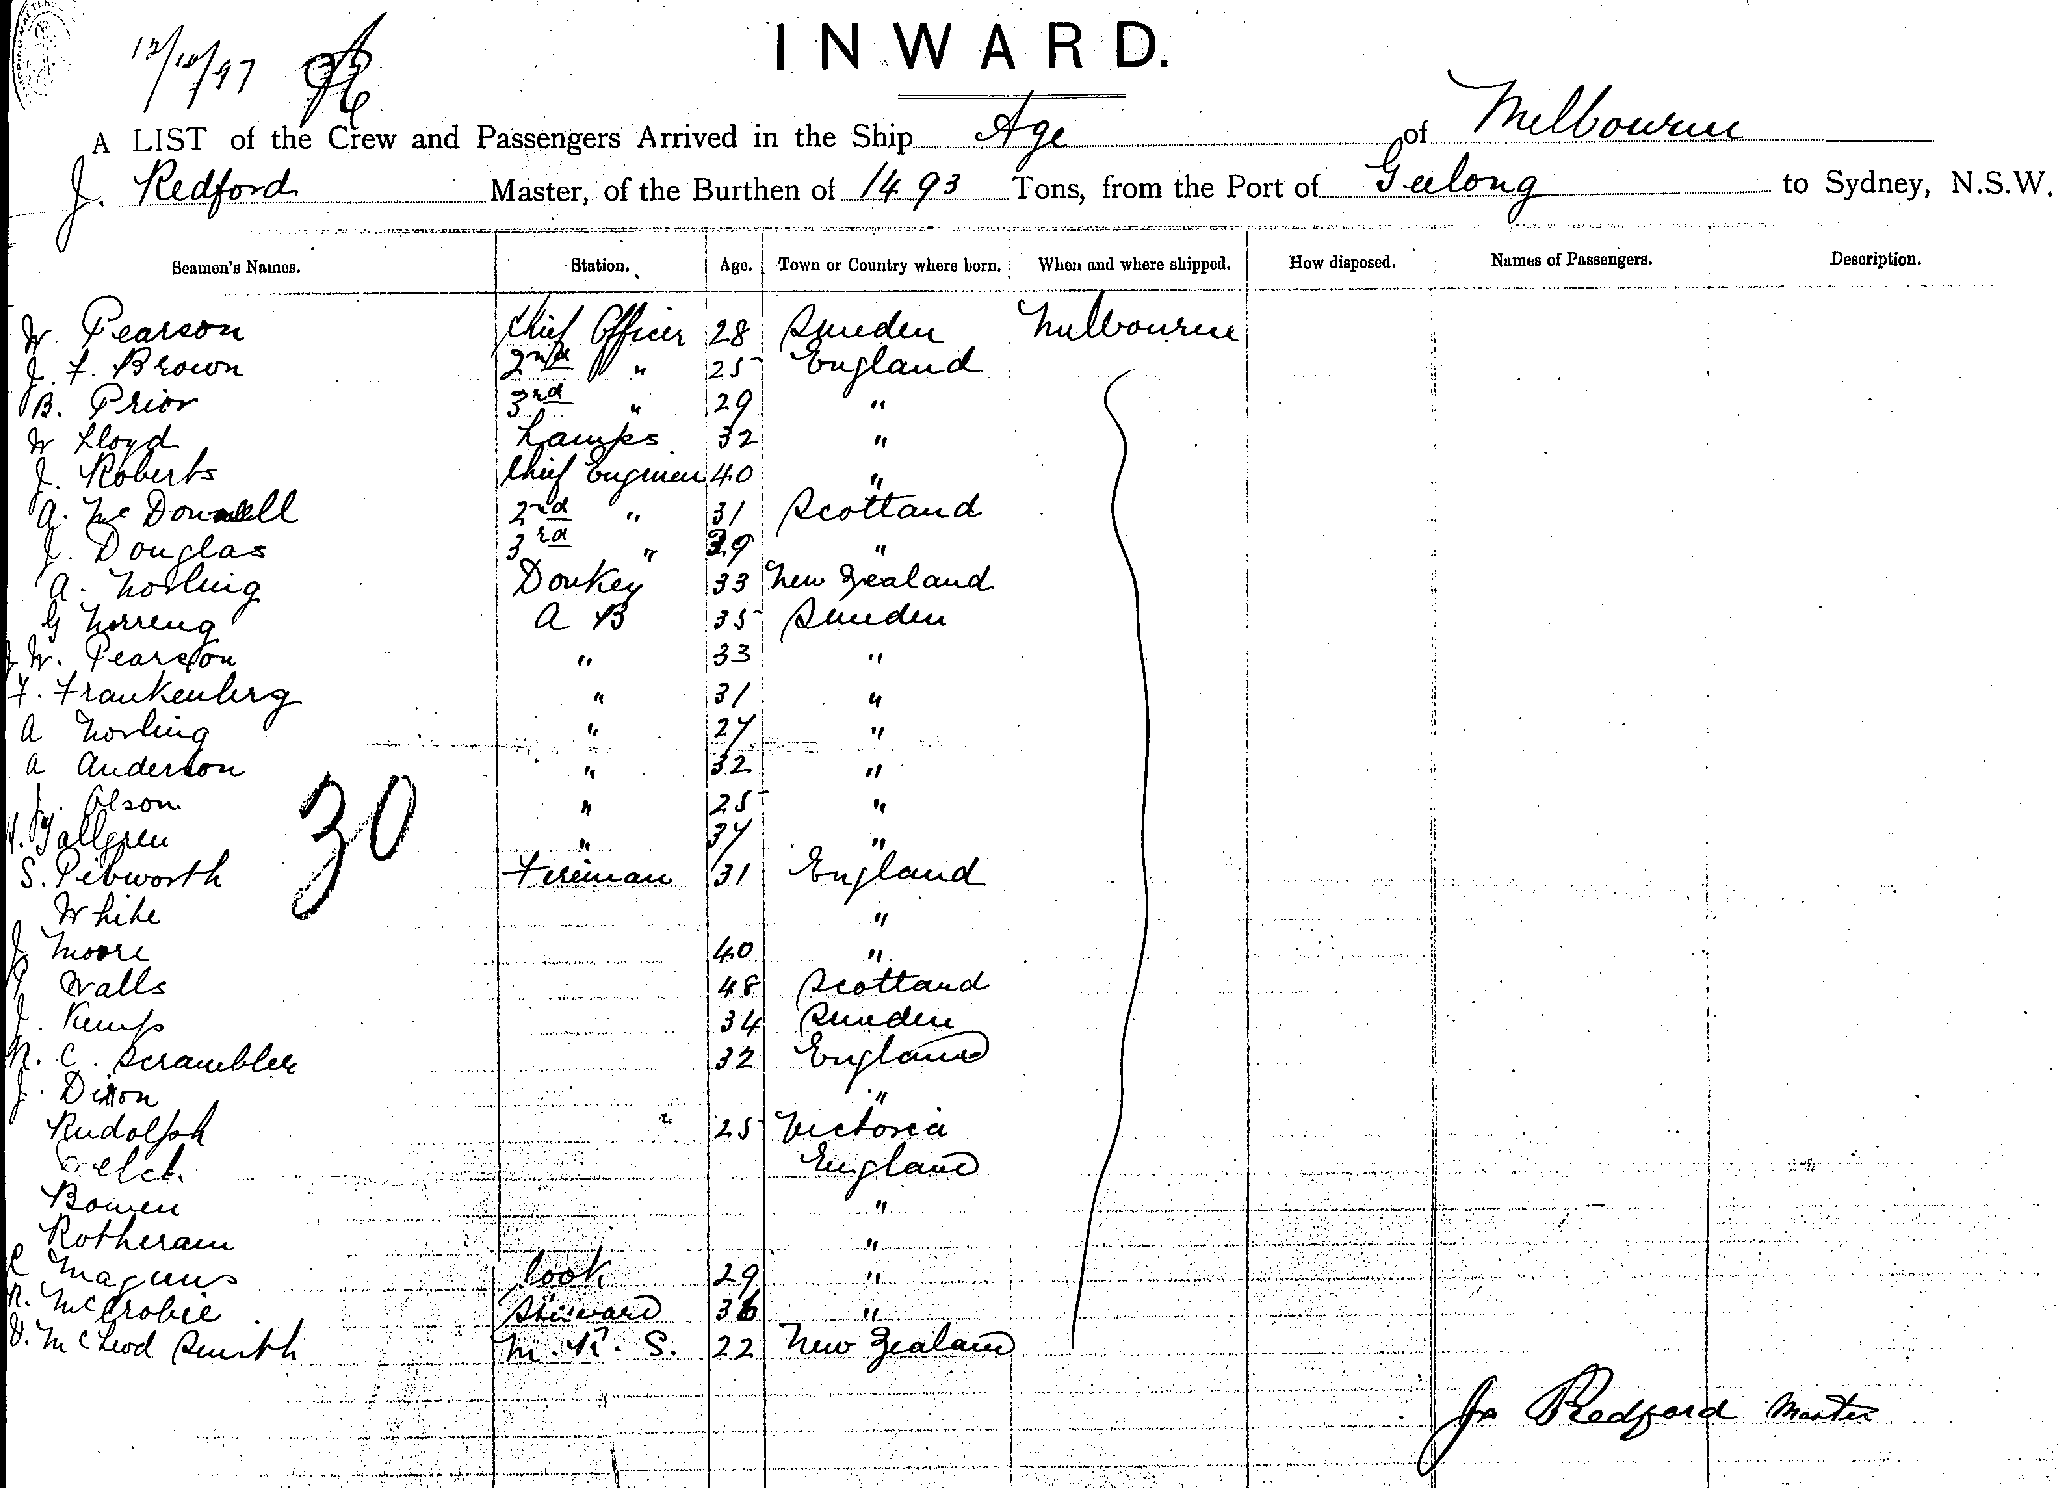 12/10/97
INWARD.
A LIST of the Crew and Passengers Arrived in the Ship Age of Melbourne
J. Redford Master, of the Burthen of 1493 Tons, from the Port of Geelong to Sydney, N.S.W.
Seamen's Names. Station. Age. Town or Country where born. When and where shipped. How disposed. Names of Passengers. Description.
W. Pearson Chief Officer 28 Sweden Melbourne
J. F. Brown 2nd " 25 England
B. Prior 3rd " 29 "
W Lloyd Lamps 32 "
J. Roberts Chief Engineer 40 "
A. Mc Donnell 2nd " 31 Scotland
J. Douglas 3rd " 39 "
A. Norling Donkey 33 New Zealand
G Norreng A B 35 Sweden
W. Pearson " 33 "
F. Frankenberg " 31 "
A Norling " 27 "
A Anderson " 32 "
J. Olson " 25 "
Tallgren " 37 "
S. Pibworth Fireman 31 England
White "
J Moore 40 "
Walls 48 Scotland
J. Kemp 34 Sweden
R. C. Scrambler 32 England
J. Dixon "
Rudolph " 25 Victoria
England
Bowen "
Rotheram "
C Magnus Cook 29 "
R. McCrobie Steward 36 "
V. McLeod Smith M. R. S. 22 New Zealand
30
Js Redford Master